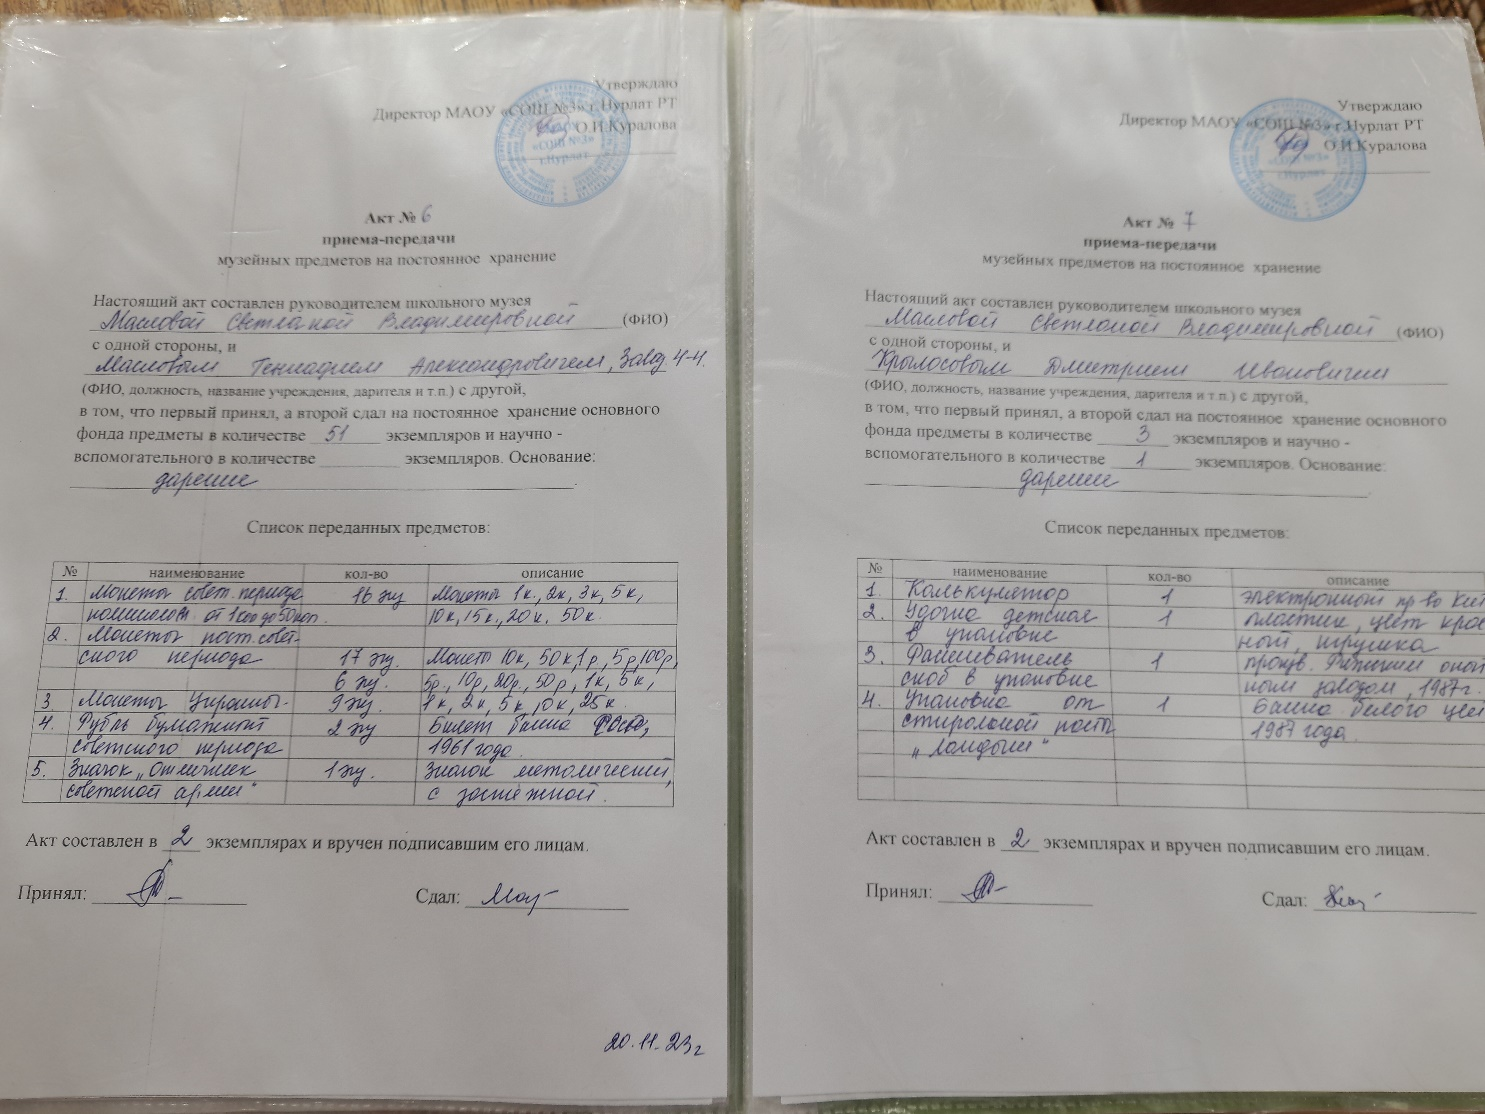 Утверждаю
Директор МАОУ «СОШ №3» г.Нурлат РТ
О.И.Куралова
«СОШ №3»
г.Нурлат
Акт № 6
приема-передачи
музейных предметов на постоянное хранение
Настоящий акт составлен руководителем школьного музея
Масловой Светланой Владимировной (ФИО)
с одной стороны, и
Масловым Геннадием Александровичем,
(ФИО, должность, название учреждения, дарителя и т.п.) с другой,
в том, что первый принял, а второй сдал на постоянное хранение основного
фонда предметы в количестве 51 экземпляров и научно -
вспомогательного в количестве ________ экземпляров. Основание:
дарение
Список переданных предметов:
№ наименование кол-во описание
1. Монеты совет. периода 16 шт Монеты 1к., 2к, 3к, 5к,
номиналом от 1 коп до 50 коп. 10к, 15к., 20к, 50к.
2. Монеты пост.совет-
ского периода 17 шт. Монеты 10к, 50к, 1р, 5р, 100р,
6 шт. 5р., 10р, 20р., 50р, 1к, 5к,
3 Монеты Украины. 9 шт. 1к, 2к, 5к, 10к, 25к.
4. Рубль бумажный 2 шт Билет банка
советского периода 1961 года.
5. Значок „Отличник 1 шт. Значок металический,
советской армии" с застежкой.
Акт составлен в 2 экземплярах и вручен подписавшим его лицам.
Принял: Сдал:
20.11.23г
Утверждаю
Директор МАОУ «СОШ №3» г.Нурлат РТ
О.И.Куралова
«СОШ №3»
г.Нурлат
Акт № 7
приема-передачи
музейных предметов на постоянное хранение
Настоящий акт составлен руководителем школьного музея
Масловой Светланой Владимировной (ФИО)
с одной стороны, и
Крылосовым Дмитрием Ивановичем
(ФИО, должность, название учреждения, дарителя и т.п.) с другой,
в том, что первый принял, а второй сдал на постоянное хранение основного
фонда предметы в количестве 3 экземпляров и научно -
вспомогательного в количестве 1 экземпляров. Основание:
дарение
Список переданных предметов:
№ наименование кол-во описание
1. Калькулятор 1 электронный пр-во Кит
2. Удочка детская 1 пластик, цвет крас
в упаковке ный, игрушка
3. Расшиватель 1
скоб в упаковке заводом, 1987г.
4. Упаковка от 1 Банка белого цве
стиральной пасты 1987 года.
„Ландыш"
Акт составлен в 2 экземплярах и вручен подписавшим его лицам.
Принял: Сдал: